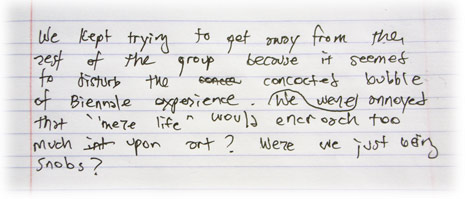 We kept trying to get away from the
rest of the group because it seemed
to disturb the concocted bubble
of Biennale experience. (We were) annoyed
that "mere life" would encroach too
much upon art? Were we just being
snobs?